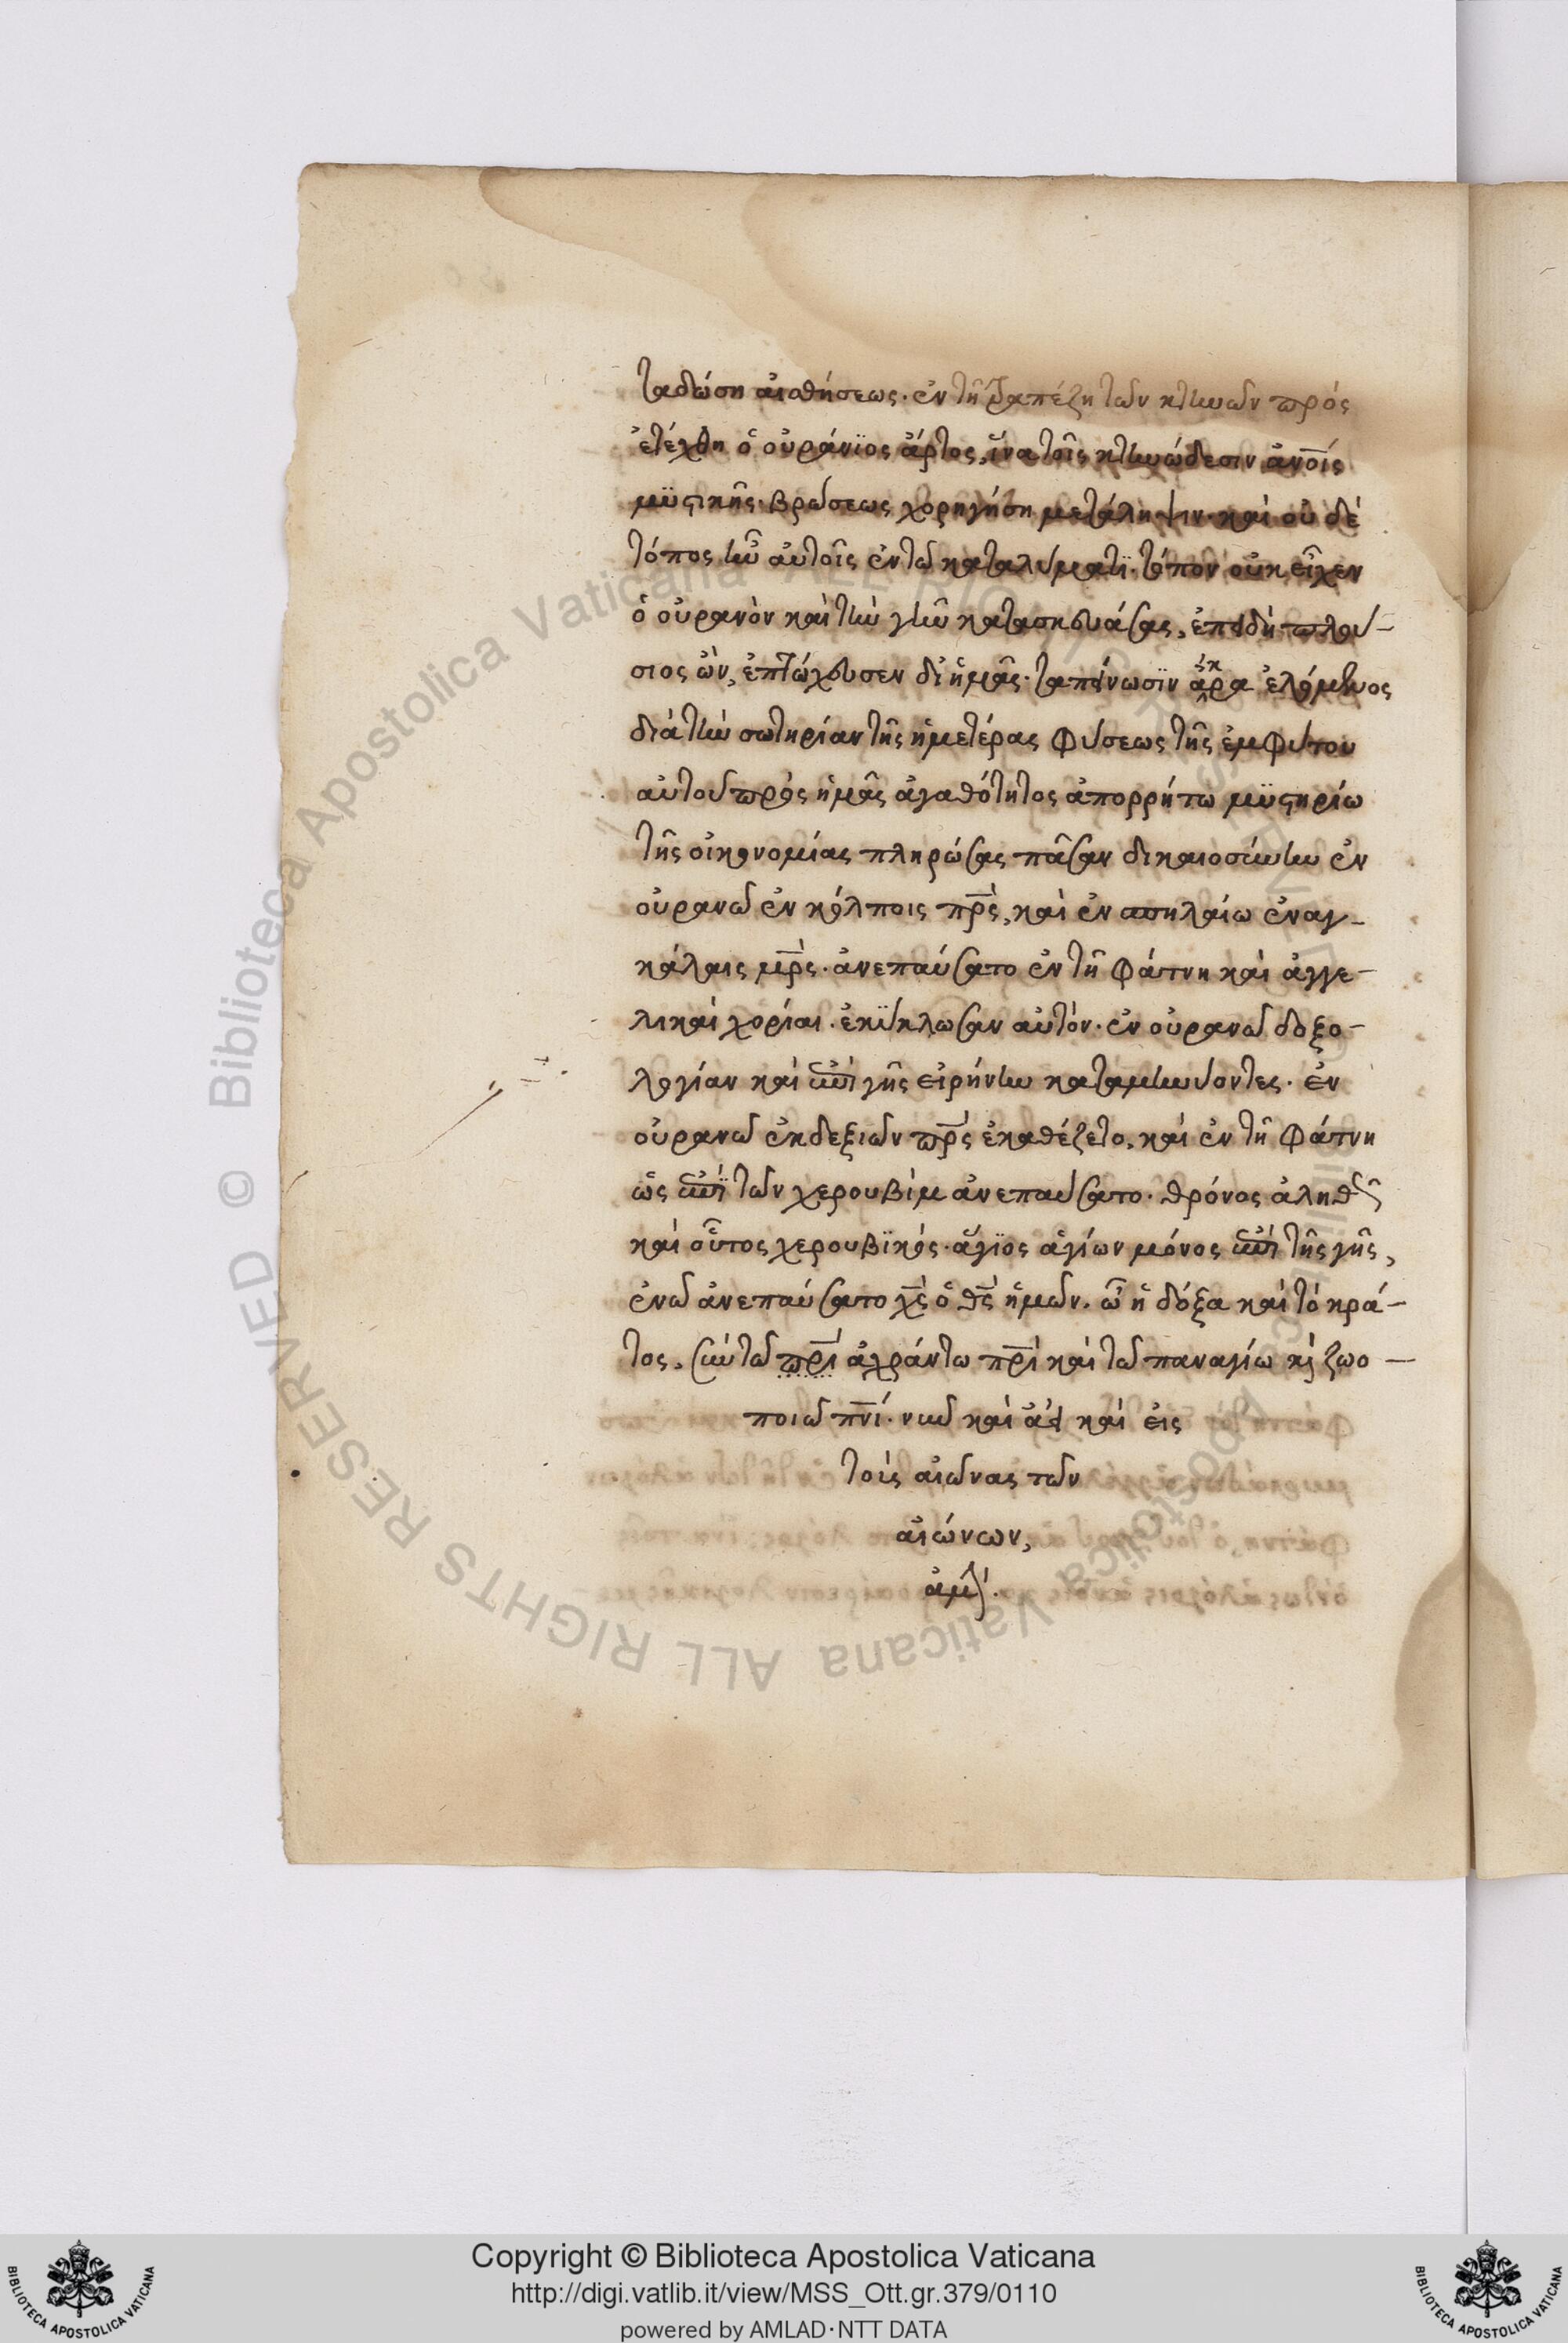 ταδώση αἰσθήσεως· ἐν τῆ τραπέζη τῶν κτηνῶν προσ
ετέχθη ὁ οὐράνϊος ἄρτος, ἵνα τοῖς κτηνώδεσιν ἀνοῖς
μϋστικῆς βρώσεως χορηγήση μετάληψιν· καὶ οὐδὲ
τόπος ἦν αὐτοῖς ἐν τῶ καταλύματϊ· τόπον οὐκ εἶχεν
ὁ οὐρανὸν καὶ τὴν γῆν κατασκευάσας, ἐπειδὴ πλού-
σιος ὢν, ἐπτώχευσεν δι ἡμᾶς· ταπείνωσϊν ἄκρα ἑλόμενος
διὰ τὴν σωτηρίαν τῆς ἡμετέρας φύσεως τῆς ἐμφύτου
αὐτοῦ πρὸς ἡμᾶς ἀγαθότητος ἀπορρήτω μϋστηρίω
τῆς οἰκονομίας πληρώσας πᾶσαν δικαιοσύνην ἐν
οὐρανῶ ἐν κόλποις πρς, καὶ ἐν σπηλαίω ἐν αγ-
κάλαις μρς· ἀνεπαύσατο ἐν τῆ φάτνη καὶ ἀγγε-
λικαὶ χορίαι· ἐκϋκλωσαν αὐτόν· ἐν οὐρανῶ δοξο-
λογίαν καὶ ἐπὶ γῆς εἰρήνην καταμηνύοντες· ἐν
οὐρανῶ ἐκ δεξιῶν πρς ἐκαθέζετο, καὶ ἐν τῆ φάτνη
ὡς ἐπὶ τῶν χερουβὶμ ἀνεπαύσατο· θρόνος ἀληθῶς
καὶ οὗτος χερουβϊκός· ἅγϊος ἁγίων μόνος ἐπὶ τῆς γῆς,
ἐν ῶ ἀνεπαύσατο χς ὁ θς ἡμῶν· ὧ ἡ δόξα καὶ τὸ κρά-
τος, σὺν τῶ πρι ἀχράντω πρι καὶ τῶ παναγίω κὶ ζωο-
ποιῶ πνι· νῦν καὶ ἀεὶ καὶ εἰς
τοὺς αἰῶνας τῶν
αἰώνων,
ἀμήν·
Copyright © Biblioteca Apostolica Vaticana
http://digi.vatlib.it/view/MSS_Ott.gr.379/0110
powered by AMLAD·NTT DATA
BIBLIOTECA APOSTOLICA VATICANA
BIBLIOTECA APOSTOLICA VATICANA
© Biblioteca Apostolica Vaticana ALL RIGHTS RESERVED